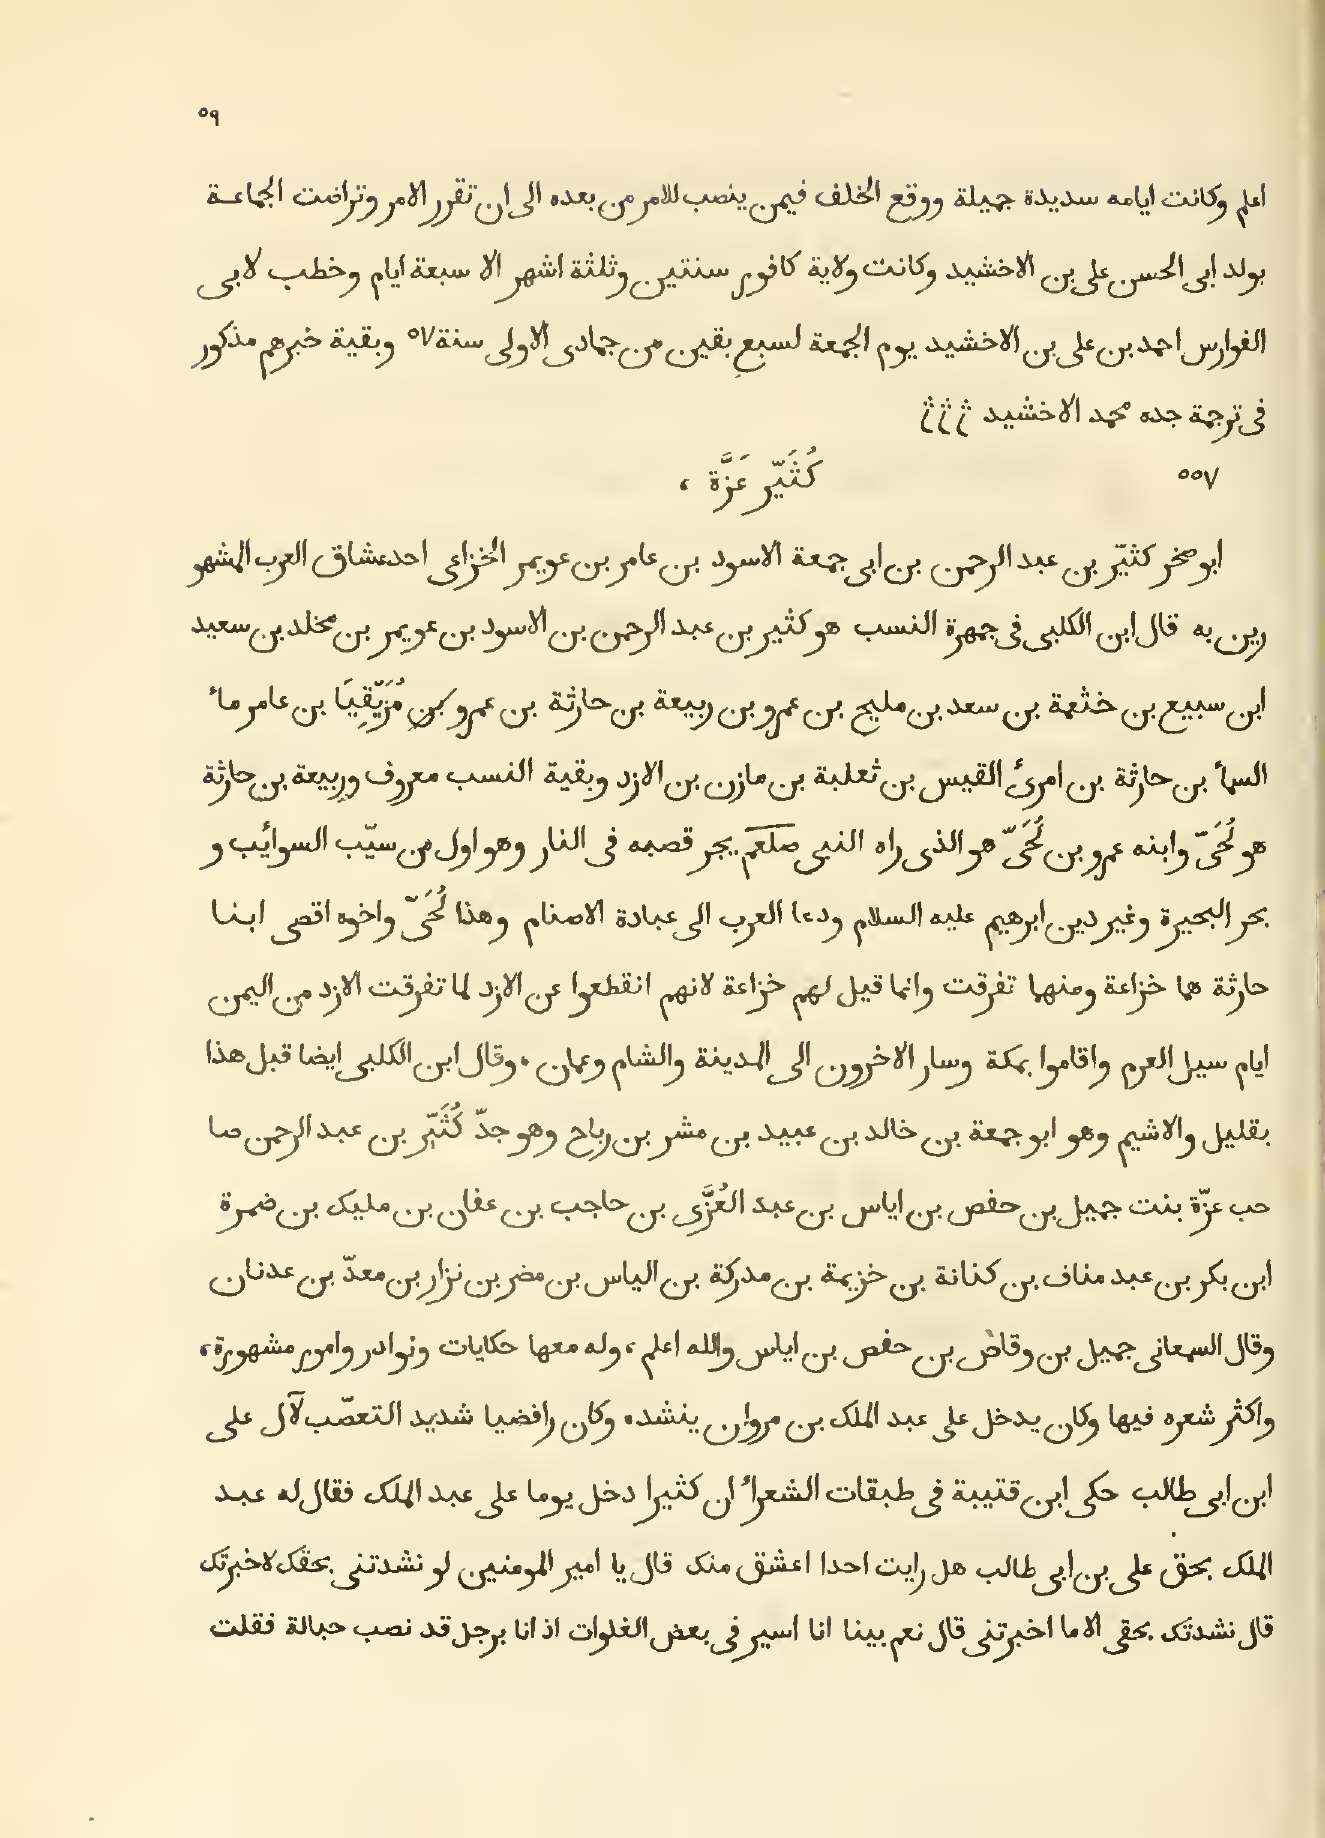 ٥٩
اعلم وكانت ايامه سديدة جميلة ووقع الخلف فيمن ينصب للامر من بعده الى ان تقرر الامر وتراضت الجماعة
بولد ابى الحسن على بن الاخشيد وكانت ولاية كافور سنتين وثلثة اشهر الا سبعة ايام وخطب لابى
الفوارس احمد بن على بن الاخشيد يوم الجمعة لسبع بقين من جمادى الاولى سنة ٥٧ وبقية خبرهم مذكور
فى ترجمة جده محمد الاخشيد
٥٥٧ كُثَيّر عَزَّة ،
ابو صخر كثيّر بن عبد الرحمن بن ابى جمعة الاسود بن عامر بن عويمر الخزاعى احد عشاق العرب المشهو
رين به قال ابن الكلبى فى جمهرة النسب هو كثير بن عبد الرحمن بن الاسود بن عويمر بن مخلد بن سعيد
ابن سبيع بن خثعمة بن سعد بن مليح بن عمرو بن ربيعة بن حارثة بن عمرو بن مُزَيّقِيَا بن عامر ماء
السماء بن حارثة بن امرئ القيس بن ثعلبة بن مازن بن الازد وبقية النسب معروف وربيعة بن حارثة
هو لُحَىّ وابنه عمرو بن لُحَىّ هو الذى راه النبى صلعم يجر قصبه فى النار وهو اول من سيّب السوائب و
بحر البحيرة وغير دين ابرهيم عليه السلام ودعا العرب الى عبادة الاصنام وهذا لُحَىّ واخوه اقصى ابنا
حارثة هما خزاعة ومنهما تفرقت وانما قيل لهم خزاعة لانهم انقطعوا عن الازد لما تفرقت الازد من اليمن
ايام سيل العرم واقاموا بمكة وسار الاخرون الى المدينة والشام وعمان ، وقال ابن الكلبى ايضا قبل هذا
بقليل والاشيم وهو ابو جمعة بن خالد بن عبيد بن مشر بن رباح وهو جدّ كُثَيّر بن عبد الرحمن صا
حب عزّة بنت جميل بن حفص بن اياس بن عبد العُزَّى بن حاجب بن عفان بن مليك بن ضمرة
ابن بكر بن عبد مناف بن كنانة بن خزيمة بن مدركة بن الياس بن مضر بن نزار بن معدّ بن عدنان
وقال السمعانى جميل بن وقاض بن حفص بن اياس والله اعلم ، وله معها حكايات ونوادر وامور مشهورة ،
واكثر شعره فيها وكان يدخل على عبد الملك بن مروان ينشده وكان رافضيا شديد التعصّب لآل على
ابن ابى طالب حكى ابن قتيبة فى طبقات الشعراء ان كثيرا دخل يوما على عبد الملك فقال له عبد
الملك بحق على بن ابى طالب هل رايت احدا اعشق منك قال يا امير المومنين لو نشدتنى بحقك لاخبرتك
قال نشدتك بحقى الا ما اخبرتنى قال نعم بينا انا اسير فى بعض الغلوات اذ انا برجل قد نصب حبالة فقلت